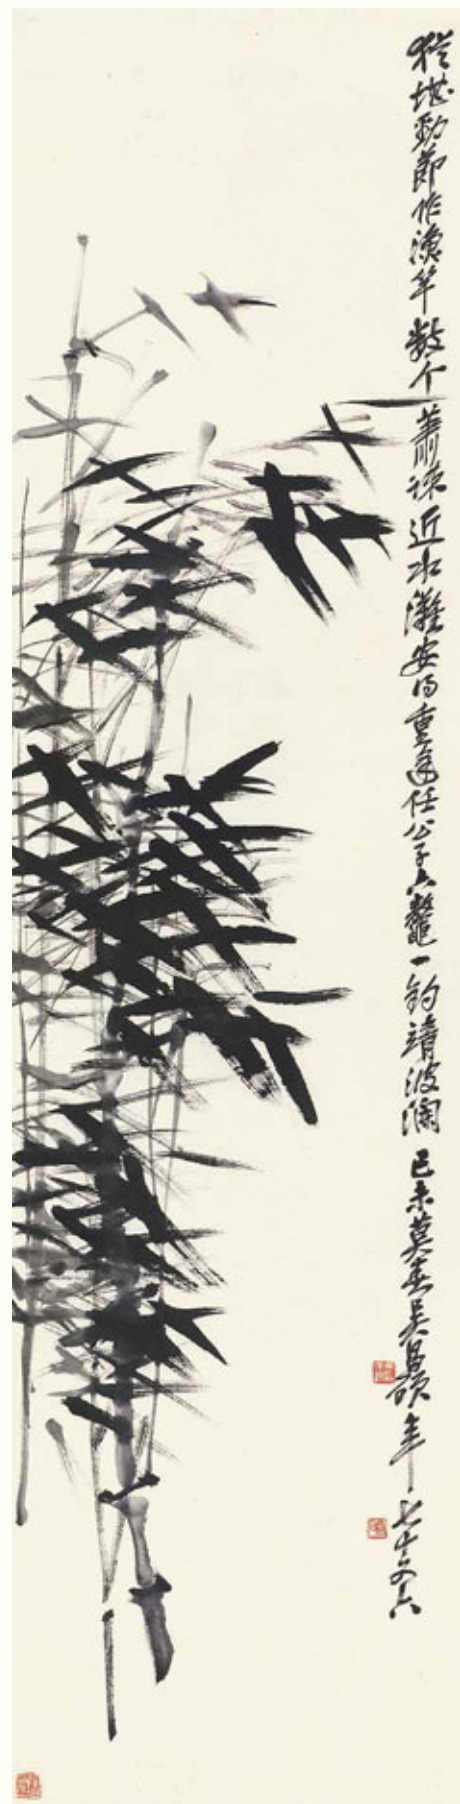 猶堪勁節作漁竿數个蕭疎近水灘安得重逢任公子六鼇一釣靖波瀾己未莫春吳昌碩年七十又六